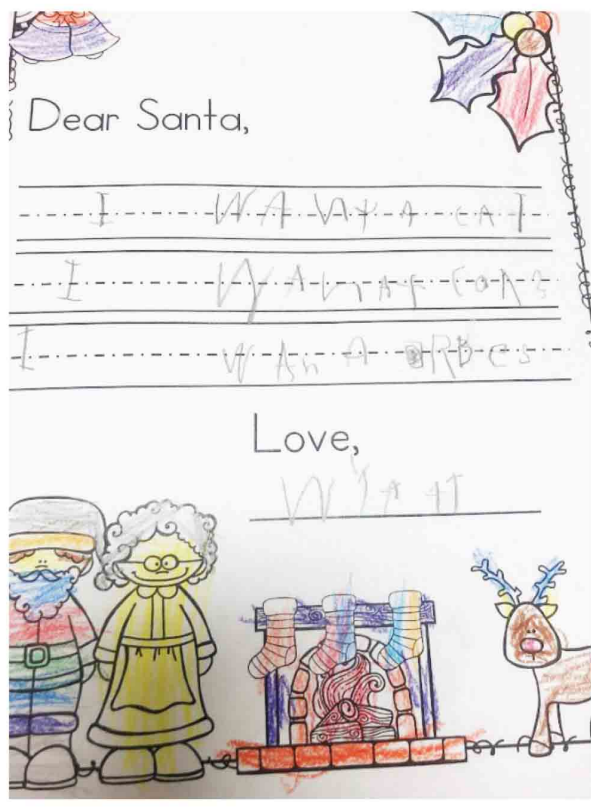 Dear Santa,
I WANT A CAT
I WANT A
I WAN A
Love,
WYATT